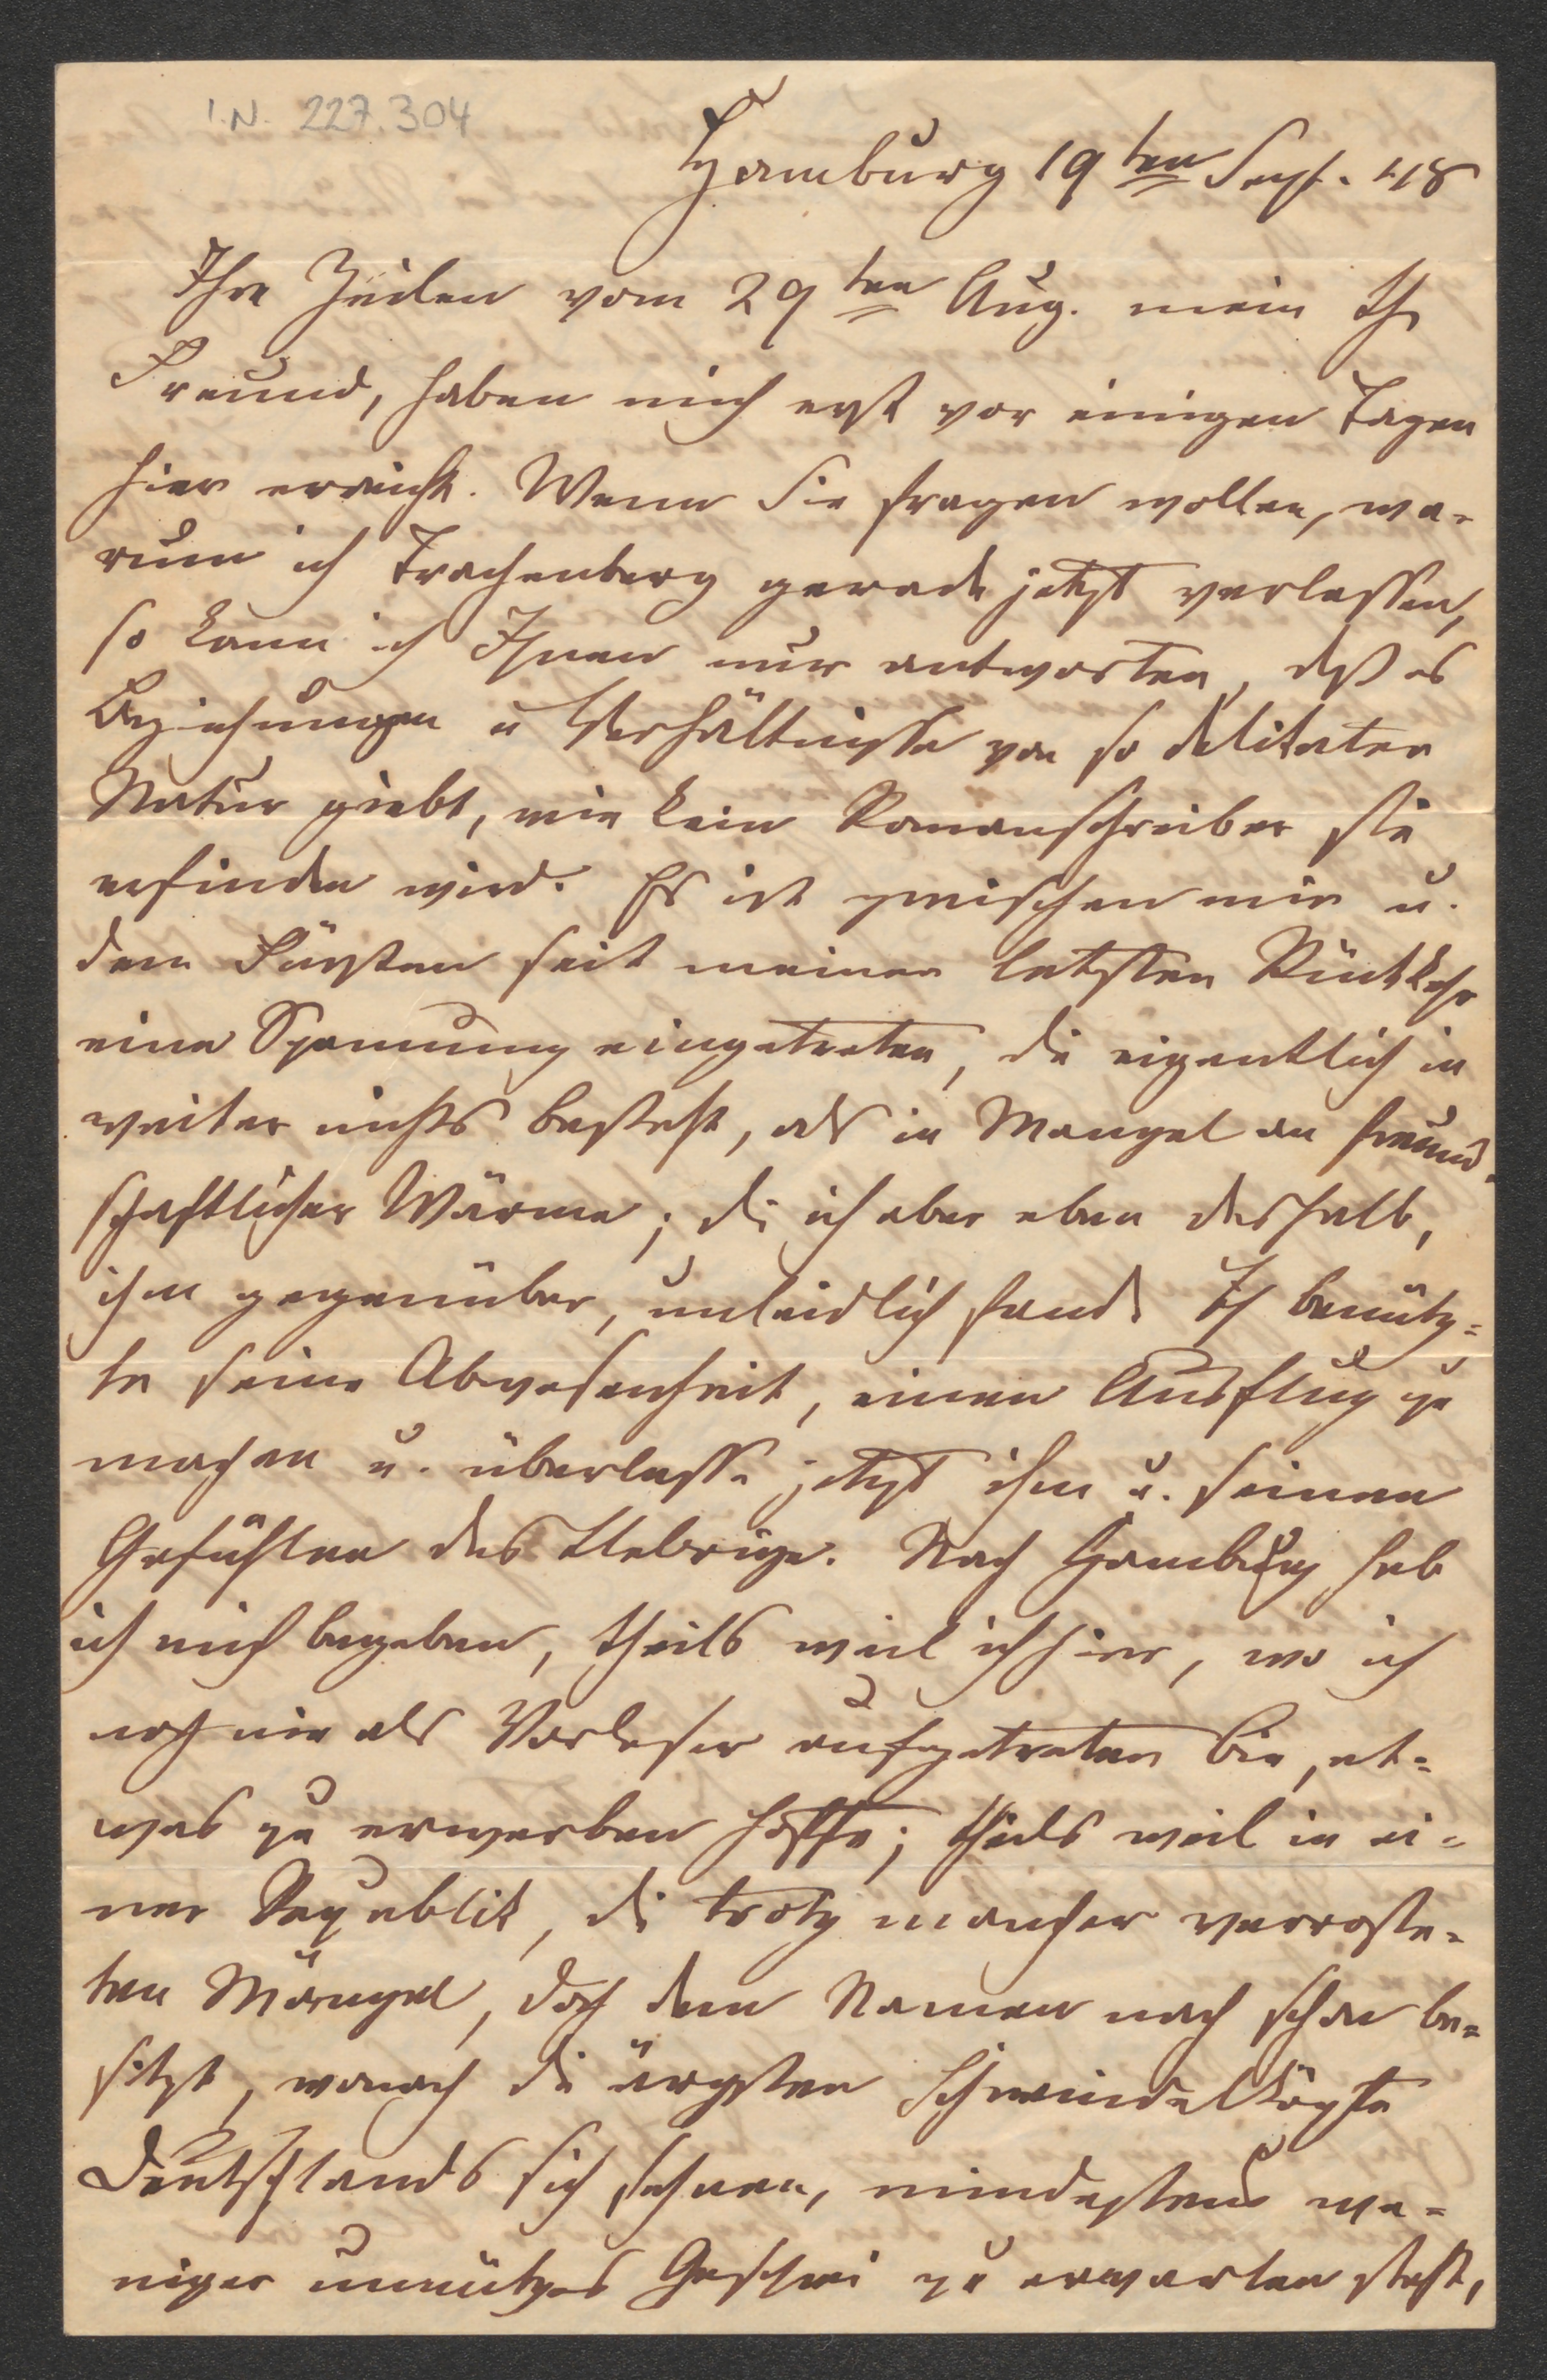 I.N. 227.304
Hamburg 19ten Sept. 48
Ihre Zeilen vom 29ten Aug. mein th
Freund, haben mich erst vor einigen Tagen
hier erreicht. Wenn Sie fragen wollen, wa-
rum ich Trachenberg gerade jetzt verlassen,
so kann ich Ihnen nur antworten, dß es
Beziehungen u Verhältnisse von so delikater
Natur giebt, wie kein Romanschreiber sie
erfinden wird. Es ist zwischen mir u.
dem Fürsten seit meiner letzten Rückkehr
eine Spannung eingetreten, die eigentlich in
weiter nichts besteht, als in Mangel an freund-
schaftlicher Wärme; di ich aber eben deshalb,
ihm gegenüber, unleidlich fand. Ich benütz-
te seine Abwesenheit, einen Ausflug zu
machen u. überlasse jetzt ihm u. seinen
Gefühlen das Uebrige. Nach Hamburg hab
ich mich begeben, theils weil ich hier, wo ich
noch nie als Vorleser aufgetreten bin, et-
was zu erwerben hoffe; theils weil in ei-
ner Republik, di trotz mancher verroste-
ten Mängel, doch dem Namen nach schon be-
sitzt, wonach die ärgsten Schwindelköpfe
Deutschlands sich sehnen, mindestens we-
niger unnützes Geschrei zu erwarten steht,